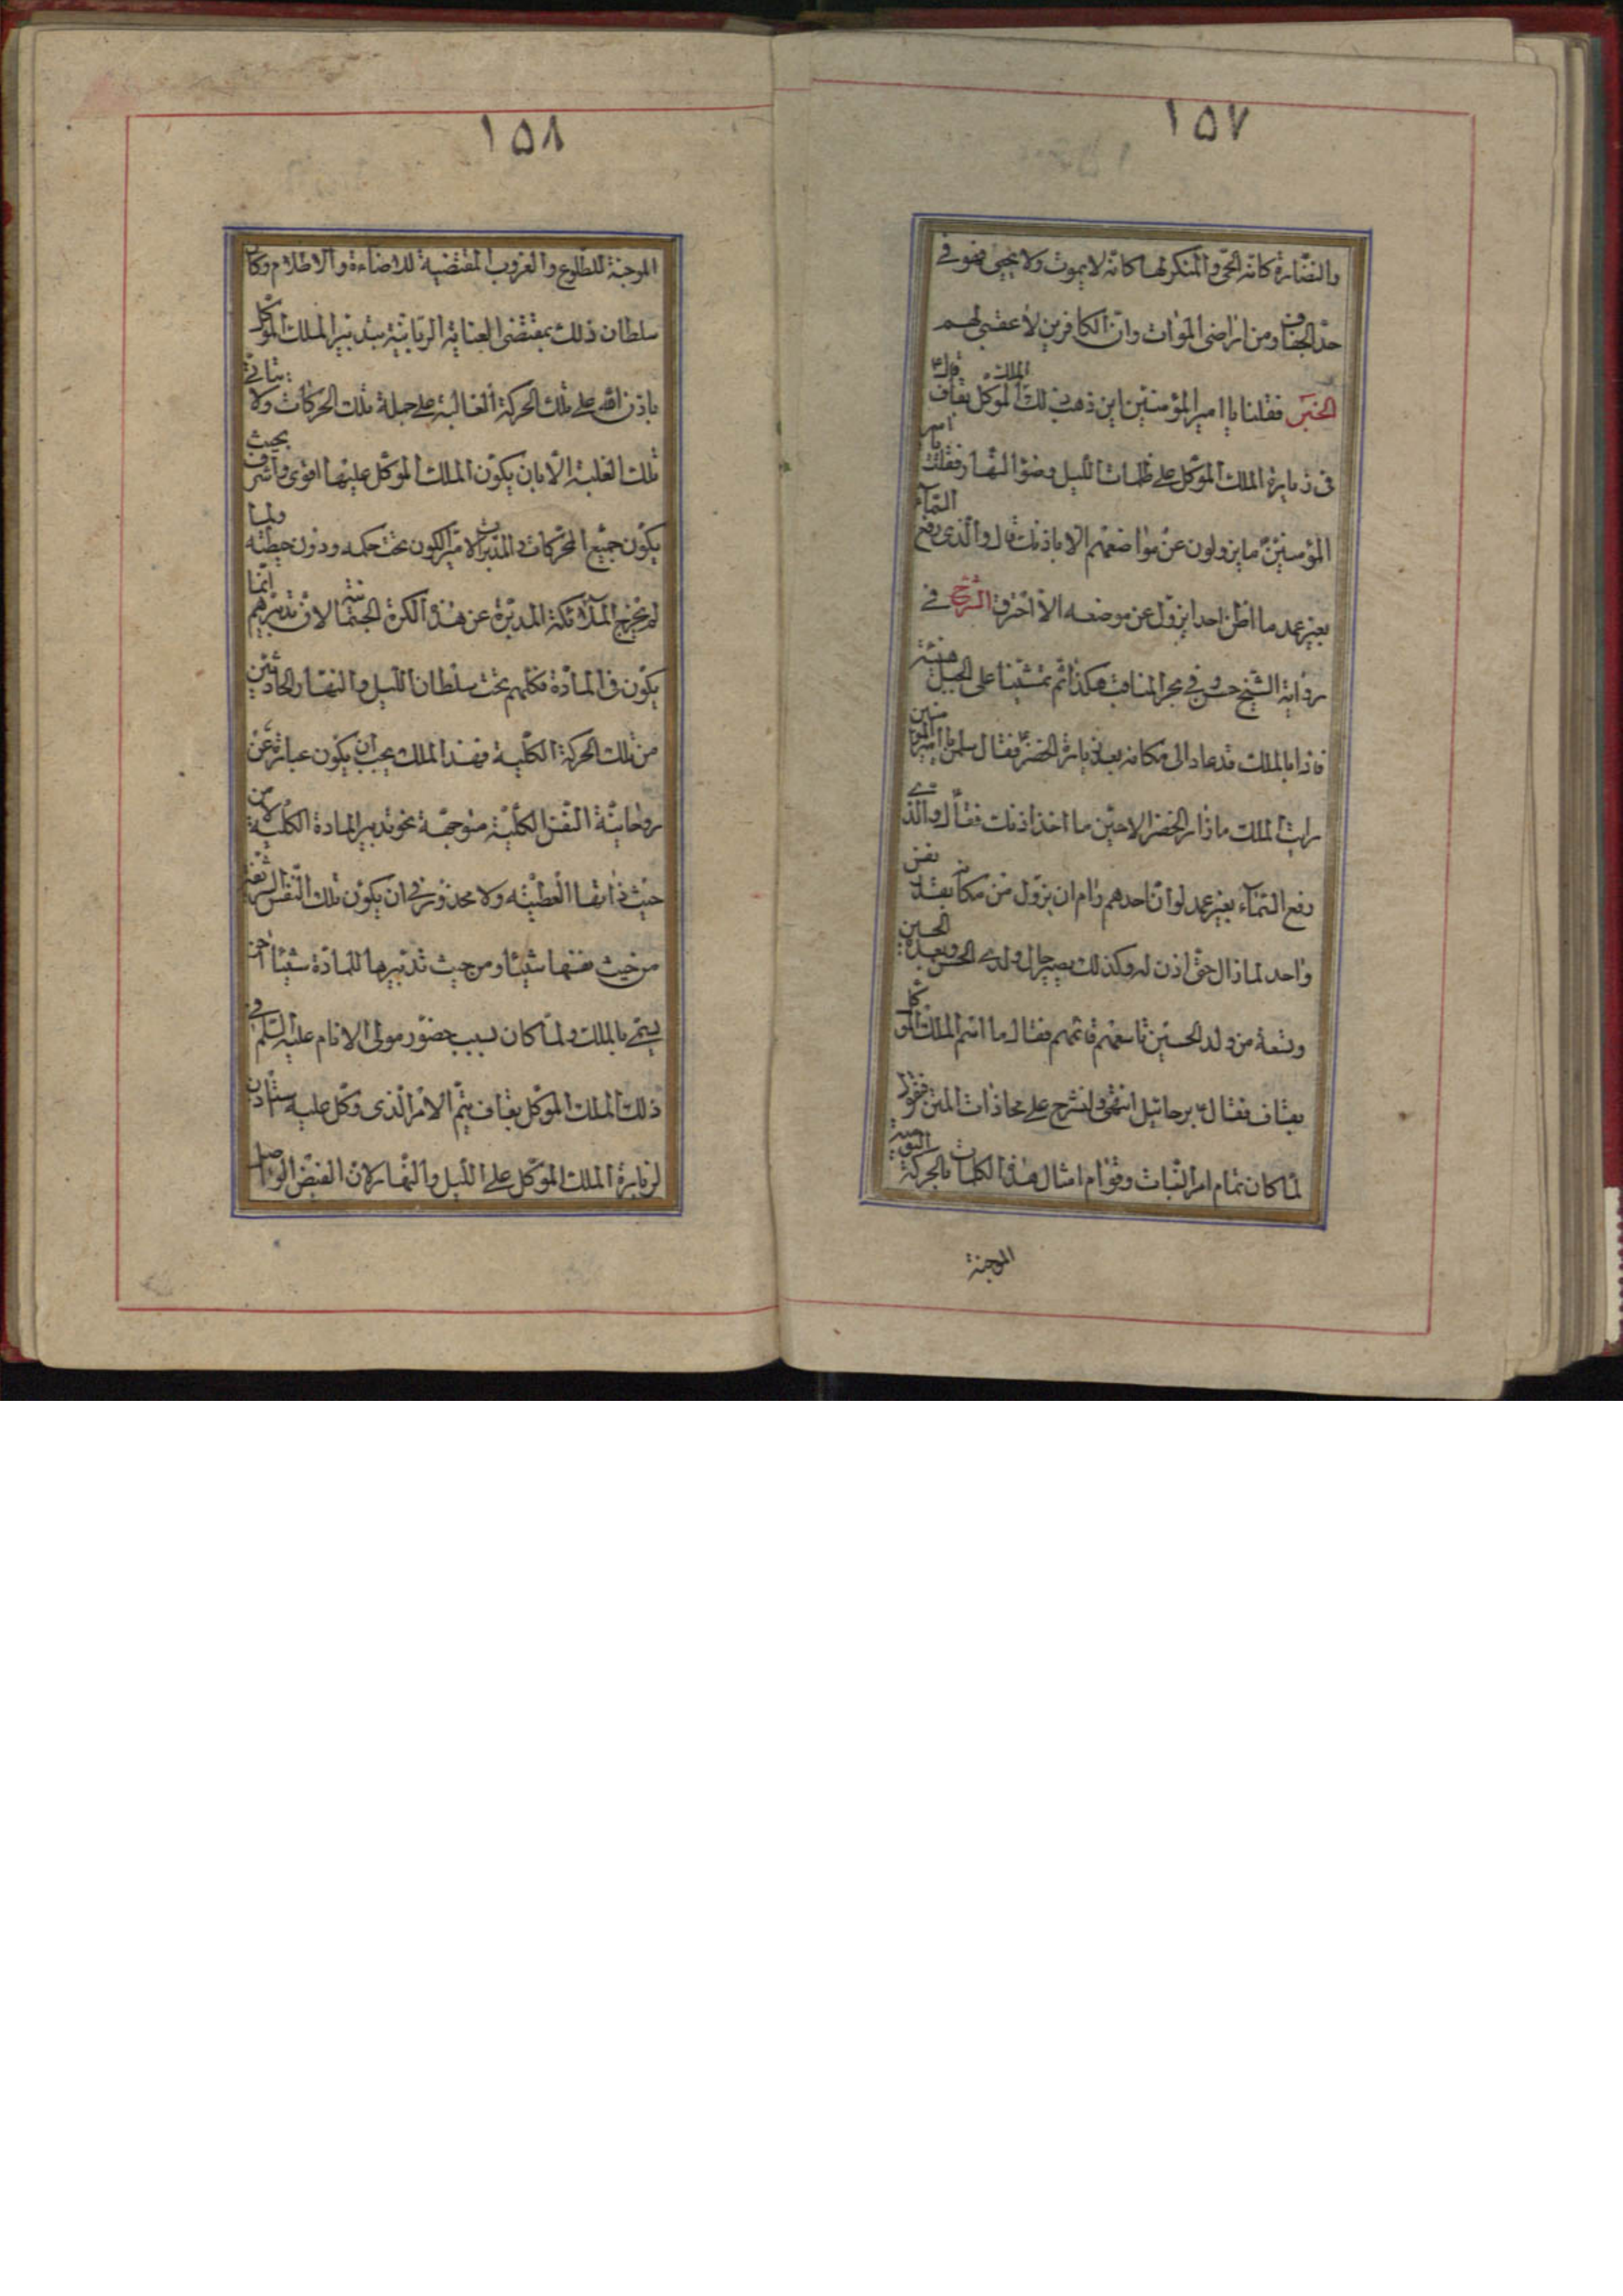 ١٥٧
والنضارة كانه الحی والمنکر لها کانه لا یموت ولا یحیی فهو فی
حد الجفاف ومن اراضی الموات وان الکافرین لا عقبی لهم
الخبر فقلنا یا امیر المؤمنین این ذهب ذلک الملک الموکل بقاف قال
فی زیارة الملک الموکل علی ظلمات اللیل وضوء النهار فقلت یا امیر
المؤمنین ما یزولون عن مواضعهم الا باذنک قال والذی رفع السماء
بغیر عمد ما اظن احدا یزول عن موضعه الا احترق الشرح فی
روایة الشیخ حسن فی بحر المناقب هکذا ثم تمشینا علی الجبل
فاذا بالملک قد عاد الی مکانه بعد زیارة الخضر فقال سلمن یا امیر المؤمنین
رایت الملک ما زار الخضر الا حین ما اخذ اذنک فقال والذی
رفع السماء بغیر عمد لو ان احدهم رام ان یزول من مکانه بقدر نفس
واحد لما زال حتی اذن له وکذلک یصیر حال ولدی الحسن وبعده الحسین
وتسعة من ولد الحسین تاسعهم قائمهم فقال ما اسم الملک الموکل
بقاف فقال برجائیل انتهی ولنشرح علی محاذات المتن فنقول
لما کان تمام امر النبات وقوام امثال هذه الکلمات بالحرکة
الموجبة
١٥٨
الموجبة للطلوع والغروب المقتضیة للاضاءة والاظلام وکان
سلطان ذلک بمقتضی العنایة الربانیة بتدبیر الملک الموکل
باذن الله علی تلک الحرکة الغالبة علی جملة تلک الحرکات ولا یتاتی
تلک الغلبة الا بان یکون الملک الموکل علیها اقوی واشرف بحیث
یکون جمیع المحرکات والمدبرات لامر الکون تحت حکمه ودون حیطته ولما
لم یخرج الملائکة المدبرة عن هذه الکرة الجسمانیة لان تدبیرهم انما
یکون فی المادة فکلهم تحت سلطان اللیل والنهار الحادثین
من تلک الحرکة الکلیة فهذا الملک یجب ان یکون عبارة عن
روحانیة النفس الکلیة متوجهة نحو تدبیر المادة الکلیة لا من
حیث ذاتها العطیته ولا محذور فی ان یکون تلک النفس الشریفة
من حیث نفسها شیئا ومن حیث تدبیرها للمادة شیئا آخر
یسمی بالملک ولما کان بسبب حضور مولی الانام علیه السلم فی
ذلک الملک الموکل بقاف یتم الامر الذی وکل علیه ستاذن
لزیارة الملک الموکل علی اللیل والنهار لان الفیض الواصل